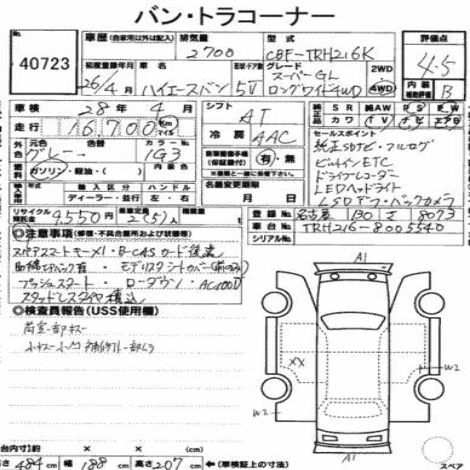 バン・トラコーナー
40723
車歴 (自家用以外は記入) 排気量 2700 型式 CBF-TRH216K 評価点 4.5
初度登録年月 26/4月 車名 ハイエースバン 形状・ドア数 5V グレード スーパーGL ロングワイド4WD 2WD 4WD 内装 補助評価 B
車検 28年4月 シフト AT
走行 16,700 Km マイル 冷房 AAC
純正品 SR 純AW PS PW
カワ TV ナビ エアB
外色 元色 グレー 色替 カラーNo 1G3
新車整備手帳 (保証書付) 有・無
セールスポイント
純正SDナビ・フルセグ
ビルトインETC
ドライブレコーダー
LEDヘッドライト
LSDデフ・バックカメラ
ガソリン・軽油・( )
輸入区分 ハンドル
ディーラー・並行 左・右
名義変更期限 月 日
リサイクル預託金 9550円 乗車定員 2(5)人
登録No. 名古屋 130 さ 8073
車台No. TRH216-8005540
シリアルNo.
◎注意事項 (修復・不具合箇所および状態)
スペアスマートキーX1・B-CASカード後送
プッシュスタート・ローダウン・AC100V
スタッドレスタイヤ積込
◎検査員報告 (USS使用欄)
荷室一部キズ
A1
XX
W2
W2
A1
荷台内寸(約) × × (cm)
長さ 484 cm 幅 188 cm 高さ 207 cm ←(車検証上の寸法)
スペア